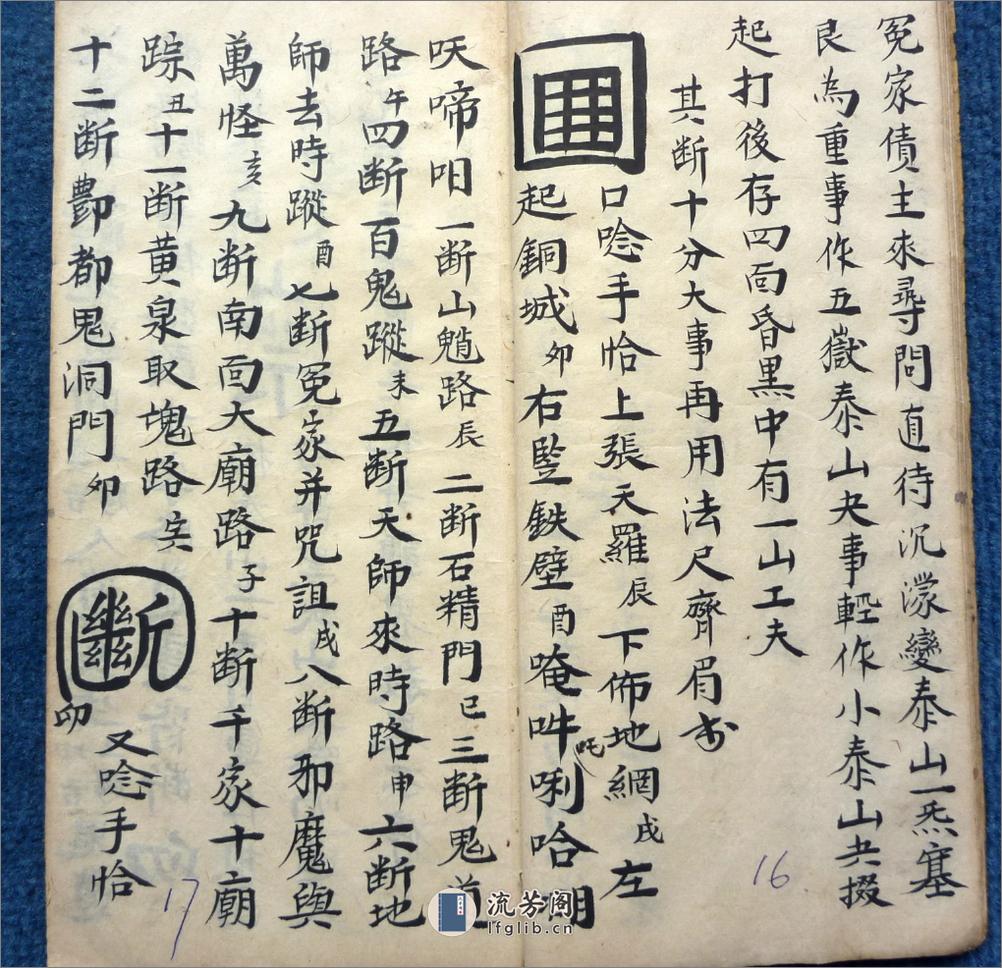 冤家債主來尋問直待沉濛變泰山一炁塞
良為重事作五嶽泰山夬事輕作小泰山共掇
起打後存四面昏黑中有一山工夫
其断十分大事再用法尺齊眉
口唸手恰上張天羅辰下佈地網戌左
起銅城夘右監鉄壁酉唵吽吒唎哈
呋啼呾一断山魈路辰二断石精門巳三断鬼道
路午四断百鬼蹤未五断天師來時路申六断地
師去時蹤酉七断冤家并咒詛戌八断邪魔與
萬怪亥九断南面大廟路子十断千家十廟
踪丑十一断黄泉取塊路寅
十二断酆都鬼洞門夘
斷
又唸手恰
16
17
流芳阁
lfglib.cn